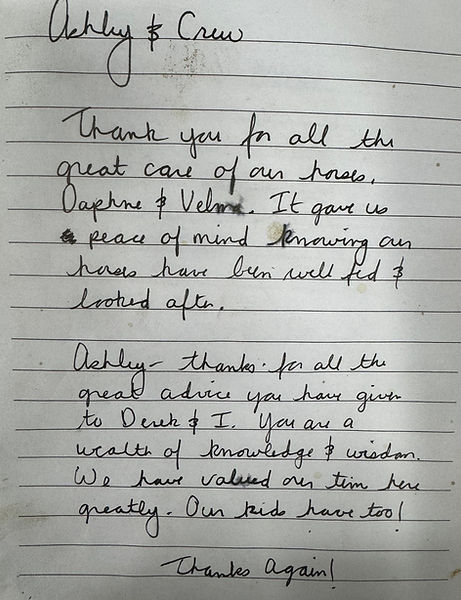 Ashley & Crew
Thank you for all the
great care of our horses,
Daphne & Velma. It gave us
peace of mind knowing our
horses have been well fed &
looked after.
Ashley- thanks for all the
great advice you have given
to Derek & I. You are a
wealth of knowledge & wisdom.
We have valued our time here
greatly. Our kids have too!
Thanks Again!